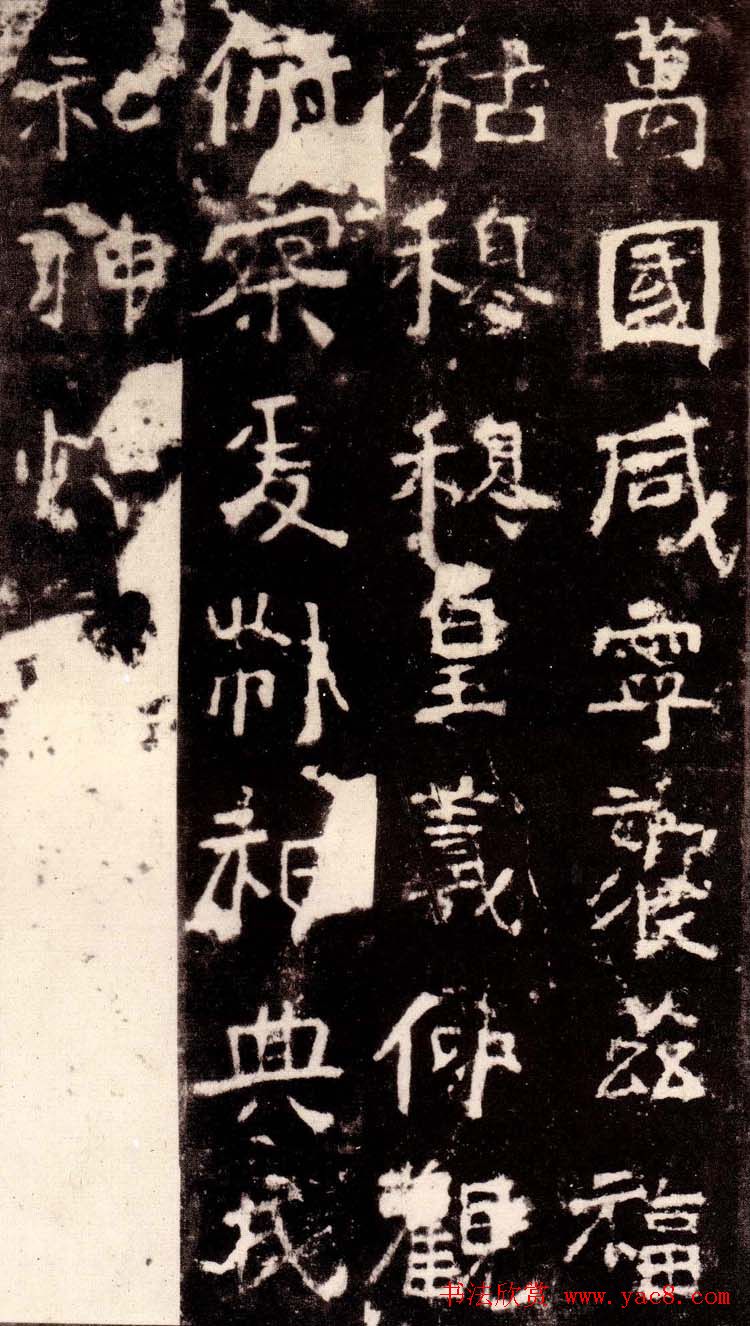 萬國咸寧襲茲福
祜穆穆皇羲仰觀
俯察爰制祀典民
和神
书法欣赏 www.yac8.com